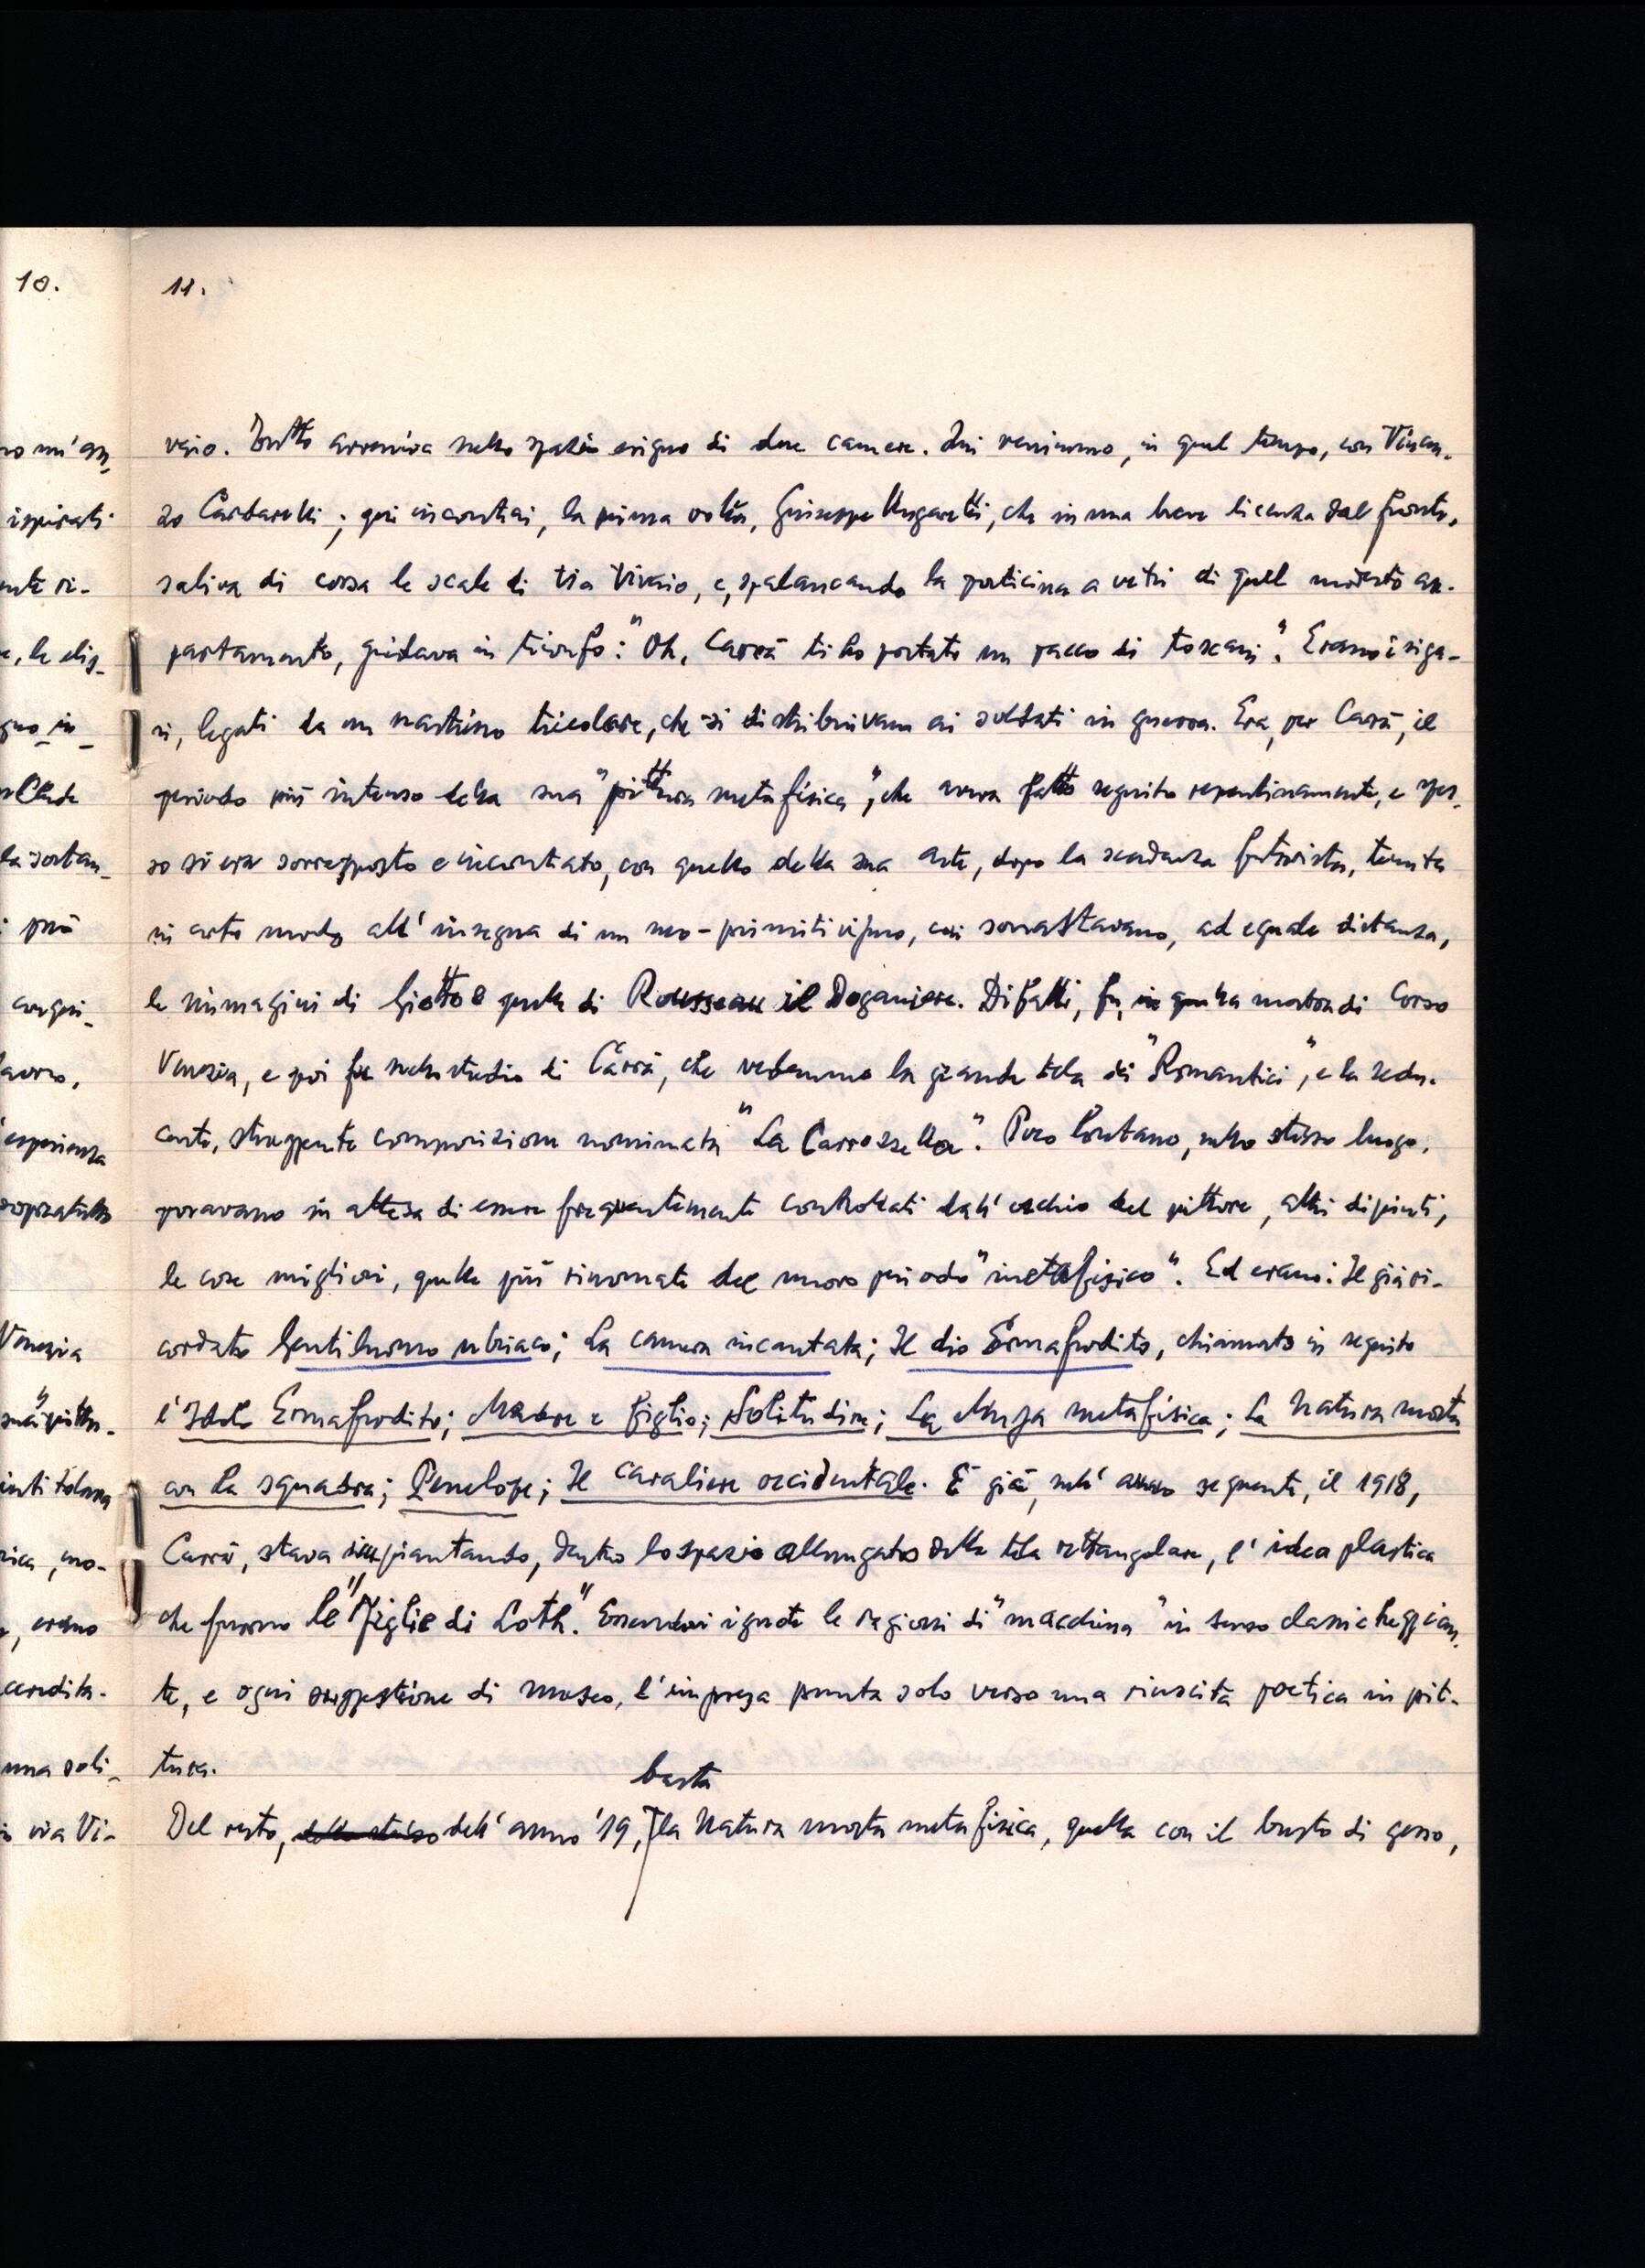 10.
11.
vaio. Tutto avveniva nello spazio esiguo di due camere. Qui venimmo, in quel tempo, con Vincen-
zo Cardarelli; qui incontrai, la prima volta, Giuseppe Ungaretti, che in una breve licenza dal fronte,
saliva di corsa le scale di Via Vivaio, e, spalancando la porticina a vetri di quel modesto ap-
partamento, gridava in trionfo: "Oh, Carrà ti ho portato un pacco di toscani". Erano i siga-
ri, legati da un nastrino tricolore, che si distribuivano ai soldati in guerra. Era, per Carrà, il
periodo più intenso della sua "pittura metafisica", che aveva fatto seguito repentinamente, e spes-
so si era sovrapposto e incontrato, con quello della sua arte, dopo la scadenza futurista, tenuta
in certo modo all'insegna di un neo-primitivismo, cui sovrastavano, ad eguale distanza,
le immagini di Giotto e quelle di Rousseau il Doganiere. Difatti, fu, in quella mostra di Corso
Venezia, e poi fu nello studio di Carrà, che vedemmo la grande tela dei "Romantici", e la sedu-
cente, struggente composizione nominata "La Carrozzella". Poco lontano, nello stesso luogo,
posavano in attesa di essere frequentemente controllati dall'occhio del pittore, altri dipinti,
le cose migliori, quelle più rinomate del nuovo periodo "metafisico". Ed erano: Il già ri-
cordato Gentiluomo ubriaco; La camera incantata; Il dio Ermafrodito, chiamato in seguito
l'Idolo Ermafrodito; Madre e Figlio; Solitudine; La Musa metafisica; La Natura morta
con la squadra; Penelope; Il cavaliere occidentale. E già, nell'anno seguente, il 1918,
Carrà, stava impiantando, dentro lo spazio allungato della tela rettangolare, l'idea plastica
che furono le "Figlie di Loth". Essendovi ignote le ragioni di "macchina" in senso classicheggian-
te, e ogni suggestione di museo, l'impresa punta solo verso una riuscita poetica in pit-
tura.
basta
Del resto, dell'anno '19, la Natura morta metafisica, quella con il busto di gesso,